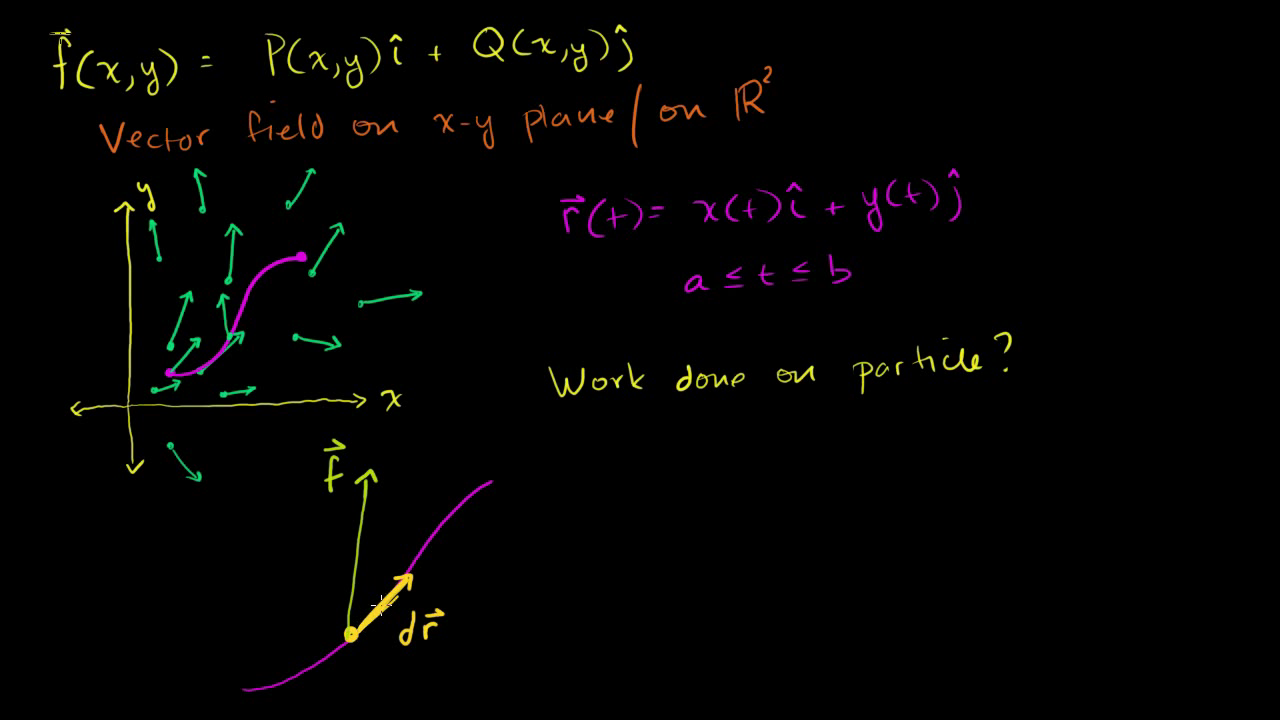 f⃗(x,y) = P(x,y)î + Q(x,y)ĵ
Vector field on x-y plane / on ℝ²
y
r⃗(t) = x(t)î + y(t)ĵ
a ≤ t ≤ b
Work done on particle?
x
f⃗
dr⃗